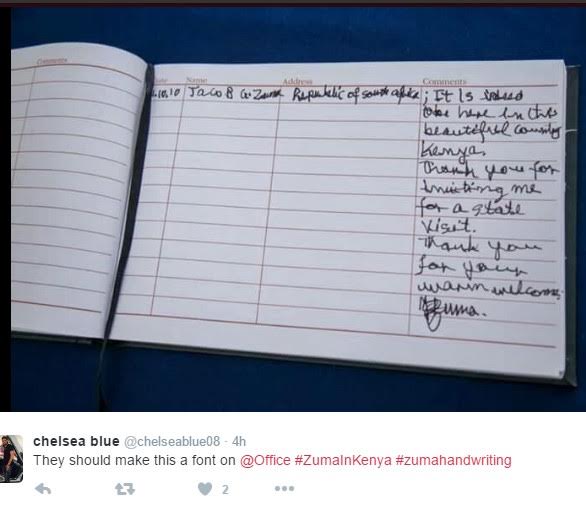 Comments
Date Name Address Comments
.10.10 Jacob G. Zuma Republic of south africa ; It Is indeed
to be here in this
beautiful country
Kenya.
Thank you for
inviting me
for a state
visit.
Thank you
for your
warm welcome.
Zuma.
chelsea blue @chelseablue08 · 4h
They should make this a font on @Office #ZumaInKenya #zumahandwriting
2